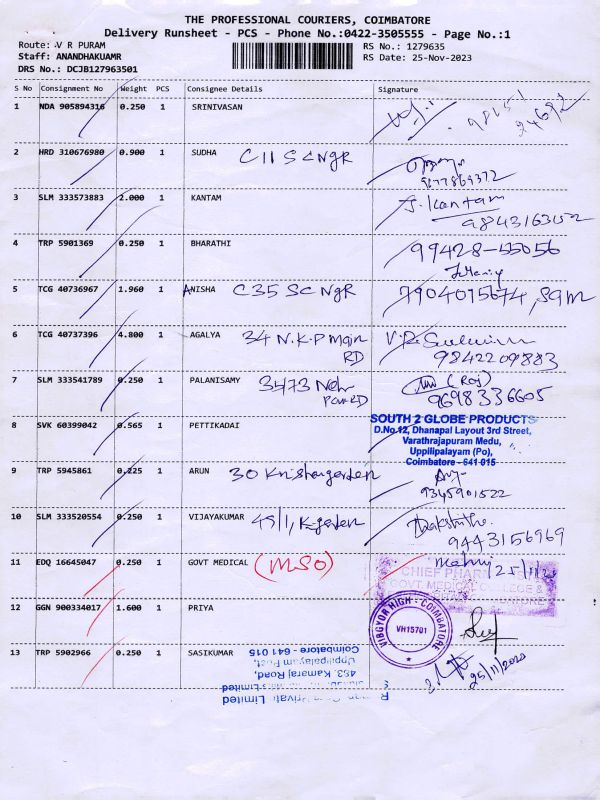 THE PROFESSIONAL COURIERS, COIMBATORE
Delivery Runsheet - PCS - Phone No.:0422-3505555 - Page No.:1
Route: V R PURAM
RS No.: 1279635
Staff: ANANDHAKUAMR
RS Date: 25-Nov-2023
DRS No.: DCJB127963501
S No Consignment No Weight PCS Consignee Details Signature
1 NDA 905894316 0.250 1 SRINIVASAN
2 HRD 310676980 0.900 1 SUDHA C11 S C NgR
9877869372
3 SLM 333573883 2.000 1 KANTAM J. Kantam
9843163152
4 TRP 5901369 0.250 1 BHARATHI 99428-55056
5 TCG 40736967 1.960 1 ANISHA C35 SC NgR 7904015674, sqm
6 TCG 40737396 4.800 1 AGALYA 34 N.K.P Main
RD
9842209883
7 SLM 333541789 0.250 1 PALANISAMY 3473 Neh (Raj)
9698336605
8 SVK 60399042 0.565 1 PETTIKADAI
SOUTH 2 GLOBE PRODUCTS
D.No.12, Dhanapal Layout 3rd Street,
Varathrajapuram Medu,
Uppilipalayam (Po),
Coimbatore - 641 015
9 TRP 5945861 0.225 1 ARUN 30 Krishangarden
9345901522
10 SLM 333520554 0.250 1 VIJAYAKUMAR 49/1, K-garden
9443156969
11 EDQ 16645047 0.250 1 GOVT MEDICAL (MSO)
CHIEF
GOVT. MEDICAL COLLEGE &
12 GGN 900334017 1.600 1 PRIYA
VIBGYOR HIGH - COIMBATORE
VH15701
13 TRP 5902966 0.250 1 SASIKUMAR
25/11/2023
Private Limited
Limited
483, Kamaraj Road,
Uppilipalayam Post,
Coimbatore - 641 015